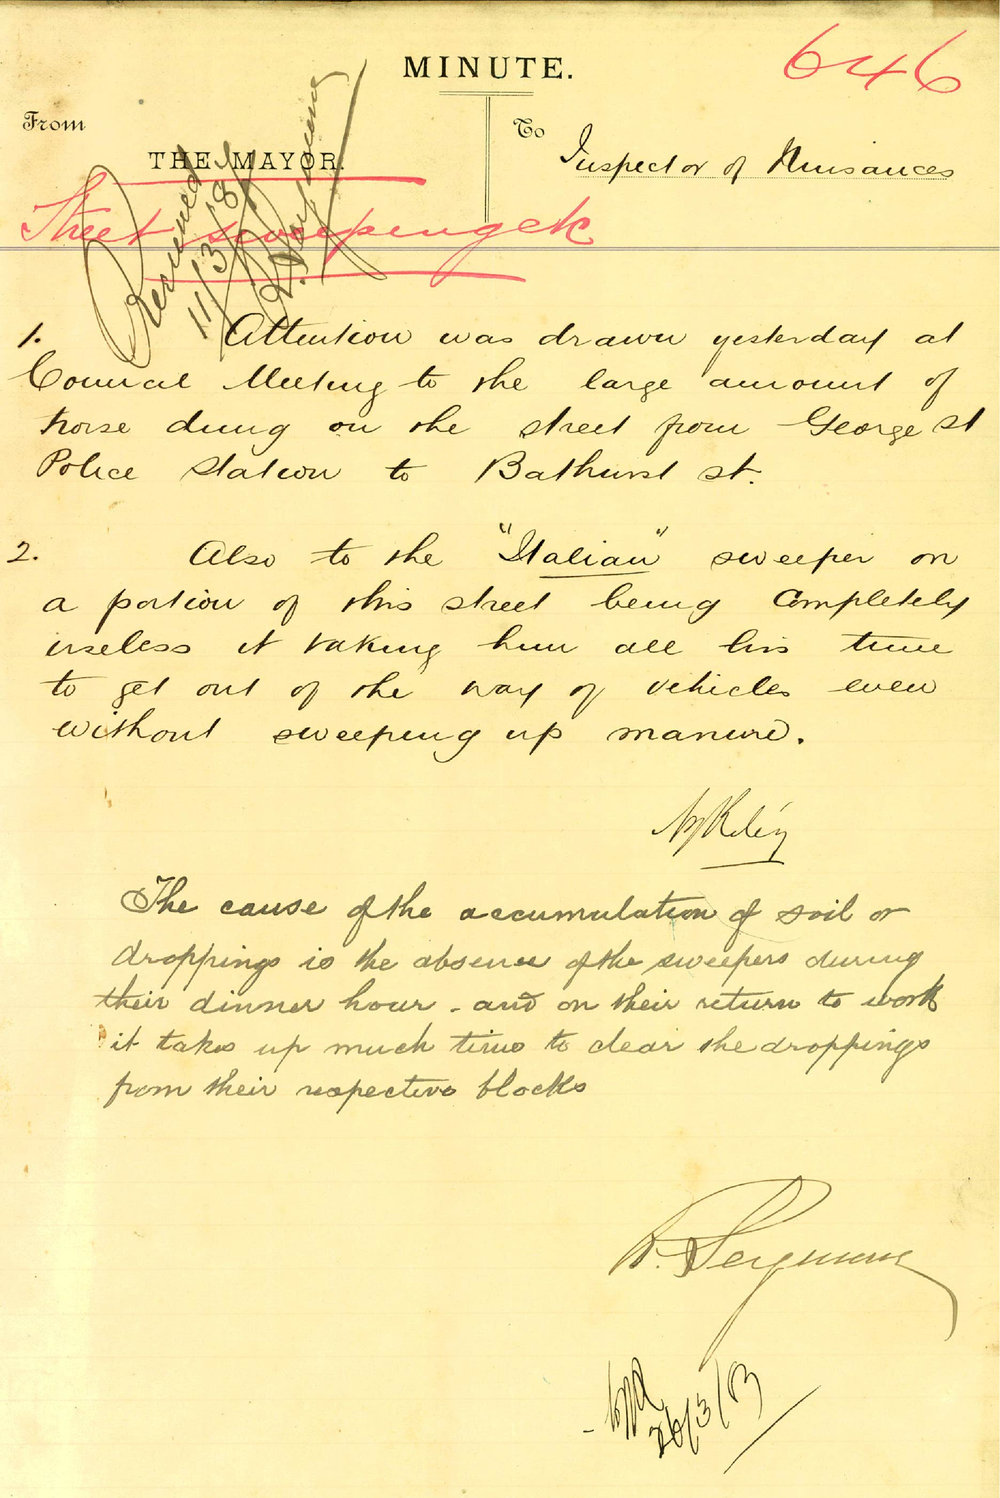 MINUTE.
646
From
THE MAYOR.
To
Inspector of Nuisances
Street sweeping
Received
11/3/87
1. Attention was drawn yesterday at
Council Meeting to the large amount of
horse dung on the street from George St
Police Station to Bathurst st.
2. Also to the "Italian" sweeper on
a portion of this street being completely
useless it taking him all his time
to get out of the way of vehicles even
without sweeping up manure.
The cause of the accumulation of soil or
droppings is the absence of the sweepers during
their dinner hour - and on their return to work
it takes up much time to clear the droppings
from their respective blocks
26/3/87